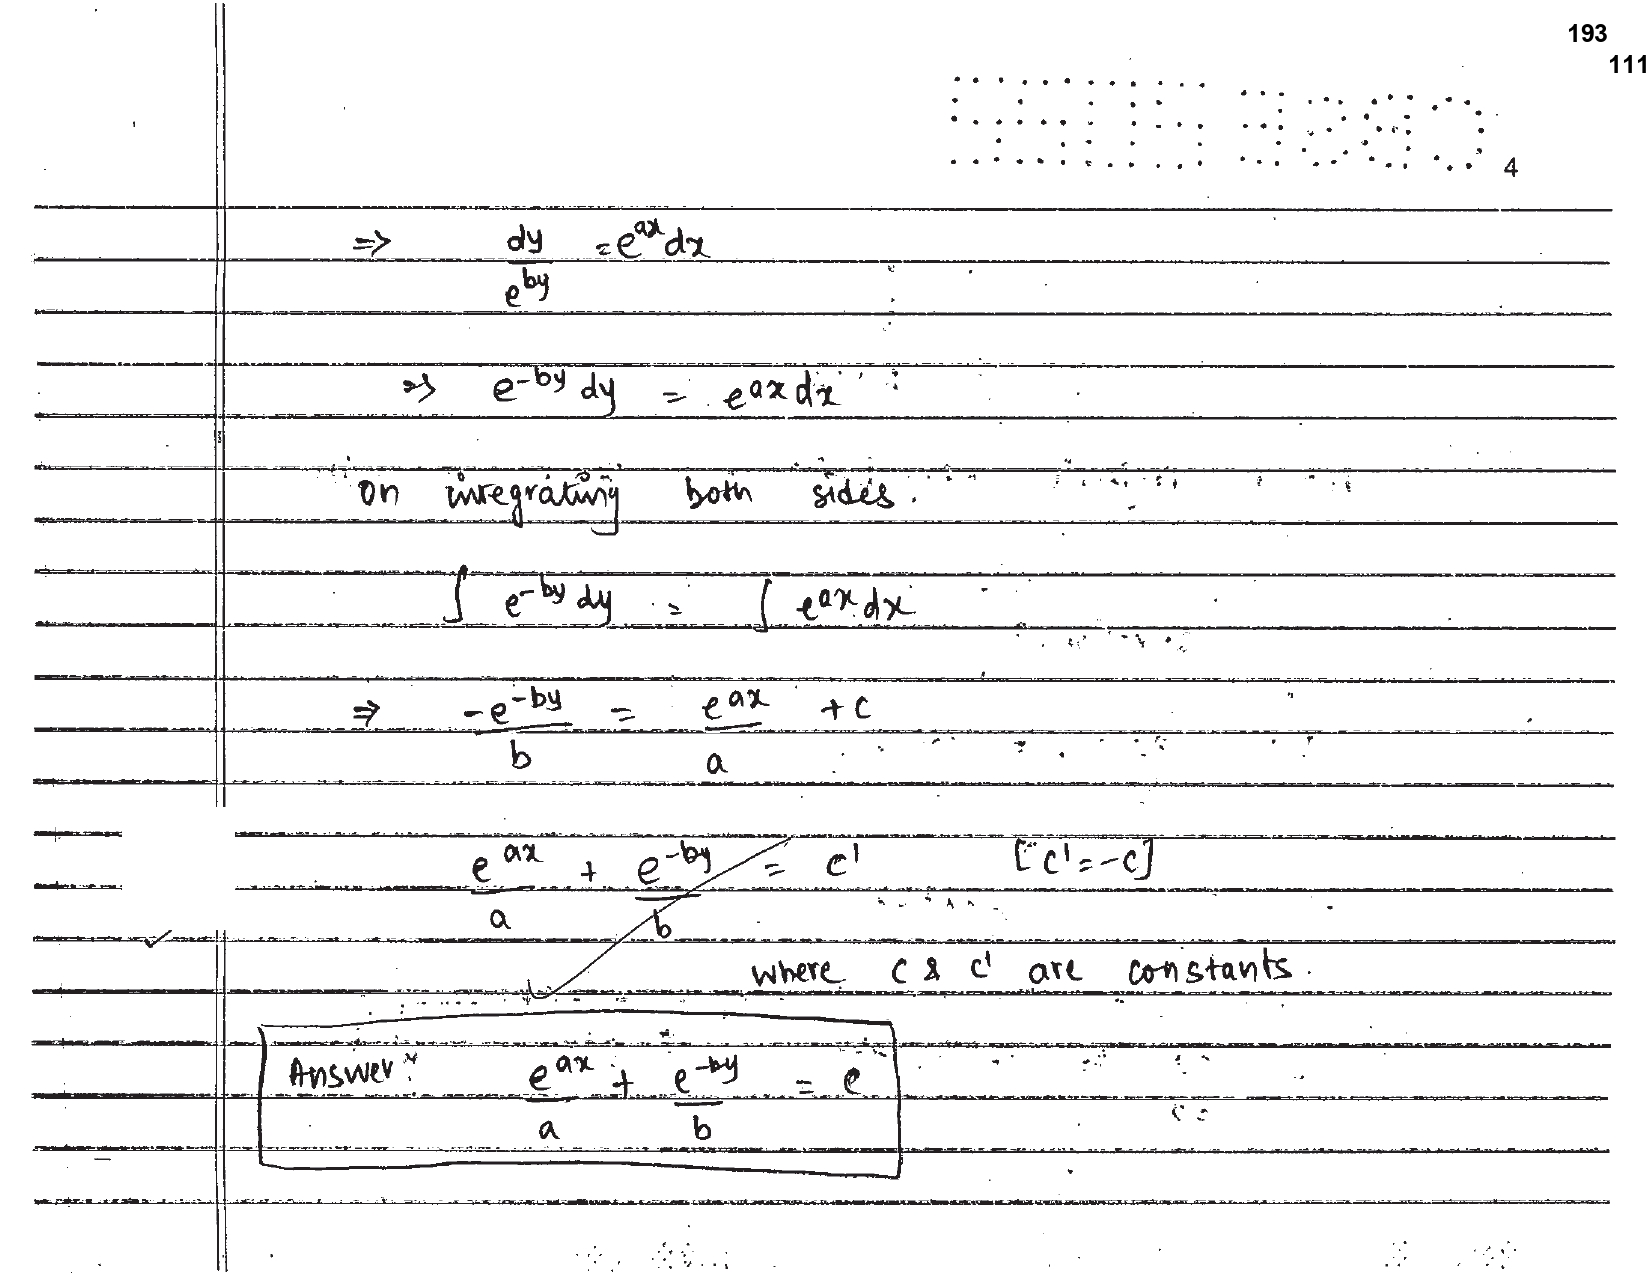 193
111
CBSE
4
⇒ dy/e^{by} = e^{ax} dx
⇒ e^{-by} dy = e^{ax} dx
On integrating both sides.
∫ e^{-by} dy = ∫ e^{ax} dx
⇒ -e^{-by}/b = e^{ax}/a + c
e^{ax}/a + e^{-by}/b = c' [c' = -c]
where c & c' are constants.
Answer: e^{ax}/a + e^{-by}/b = e